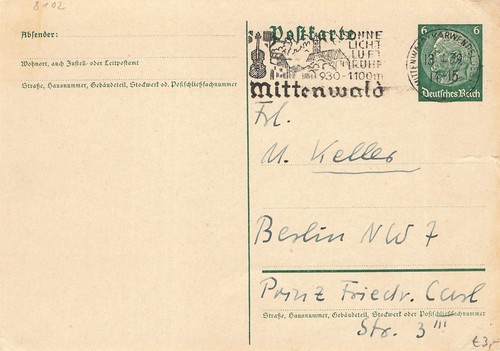 8102
Absender:
Wohnort, auch Zustell- oder Leitpostamt
Straße, Hausnummer, Gebäudeteil, Stockwerk od. Postschließfachnummer
Postkarte
SONNE
LICHT
LUFT
RUHE
930-1100m
Mittenwald
MITTENWALD (KARWENDEL)
6 6
Deutsches Reich
Frl.
M. Keller
Berlin NW 7
Prinz Friedr. Carl
Straße, Hausnummer, Gebäudeteil, Stockwerk oder Postschließfachnummer
Str. 3 III
€3,-